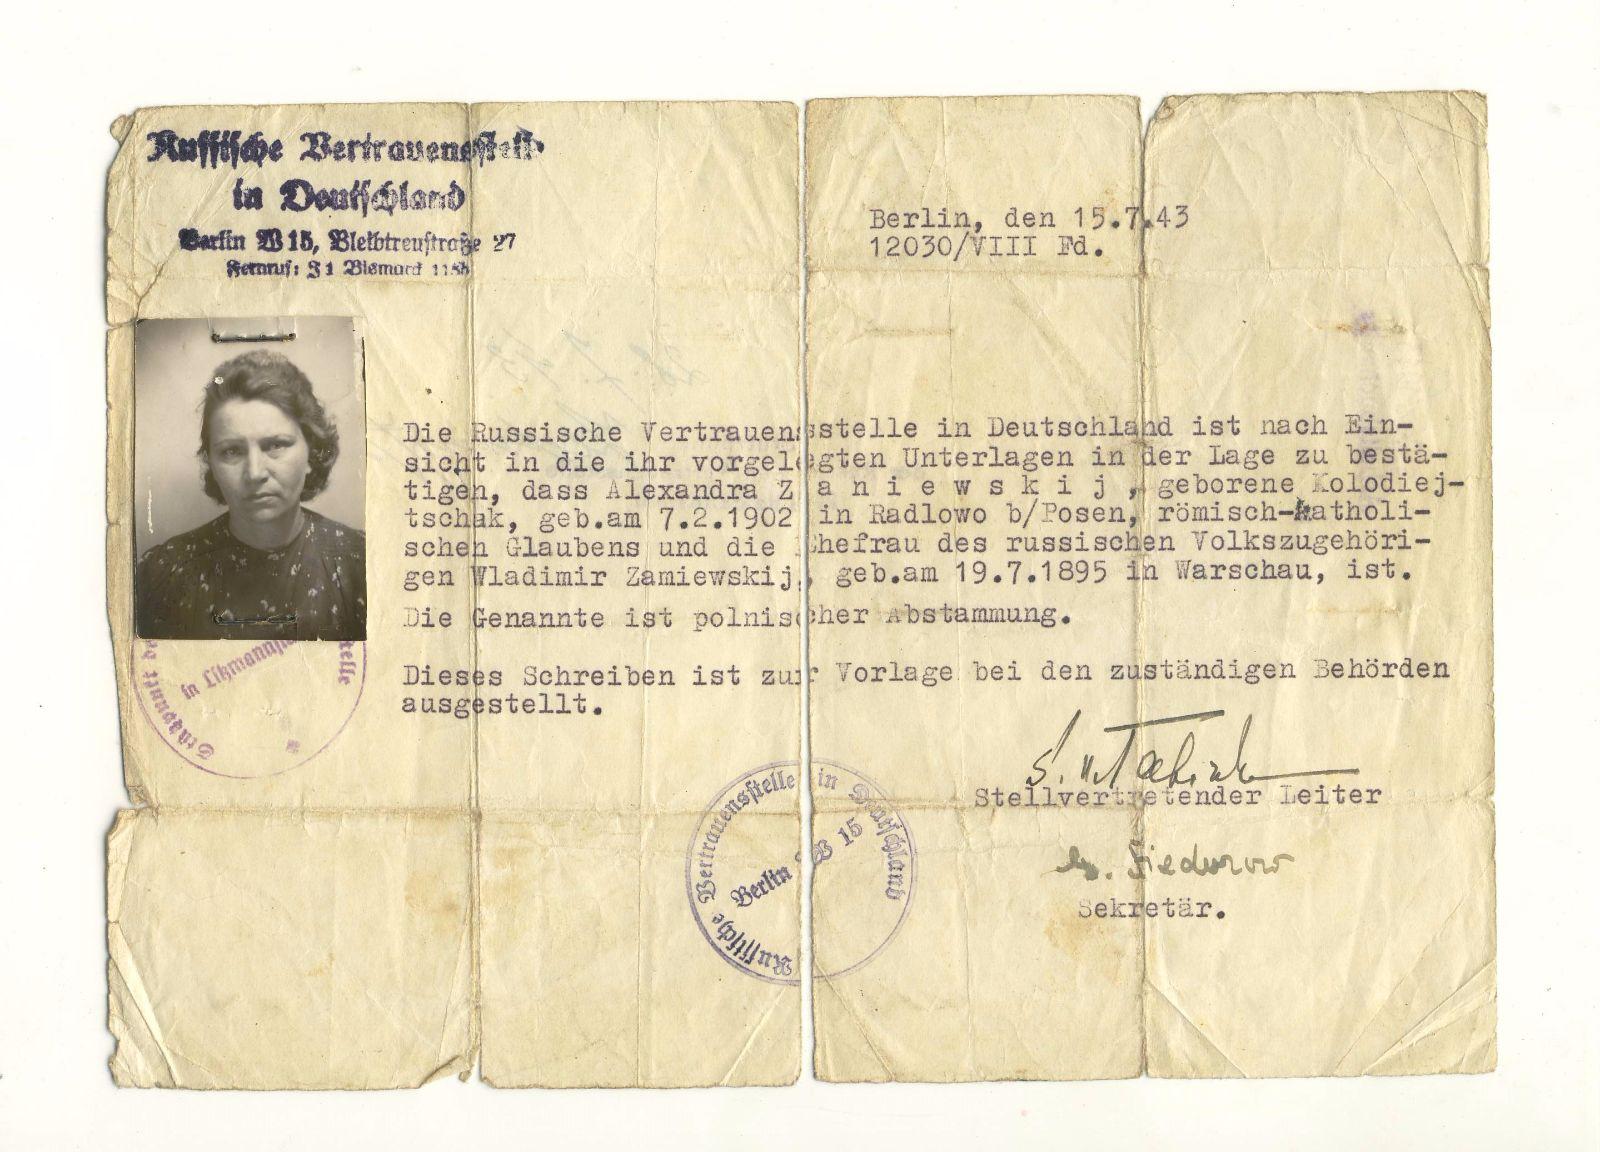 Russische Vertrauensstelle
in Deutschland
Berlin W 15, Bleibtreustraße 27
Fernruf: J 1 Bismarck 1158
Berlin, den 15.7.43
12030/VIII Fd.
Die Russische Vertrauensstelle in Deutschland ist nach Ein-
sicht in die ihr vorgelegten Unterlagen in der Lage zu bestä-
tigen, dass Alexandra Z a n i e w s k i j , geborene Kolodiej-
tschak, geb.am 7.2.1902 in Radlowo b/Posen, römisch-katholi-
schen Glaubens und die Ehefrau des russischen Volkszugehöri-
gen Wladimir Zamiewskij, geb.am 19.7.1895 in Warschau, ist.
Die Genannte ist polnischer Abstammung.
Dieses Schreiben ist zur Vorlage bei den zuständigen Behörden
ausgestellt.
in Litzmannst
stelle
Stellvertretender Leiter
Sekretär.
Russische Vertrauensstelle in Deutschland
Berlin W 15